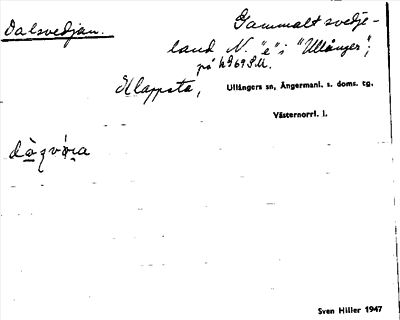 Dalsvedjan.
Gammalt svedje-
land N. "e" i "Ullånger",
på
Klappsta,
Ullångers sn, Ångermanl. s. doms. tg.
Västernorrl. l.
Sven Hiller 1947